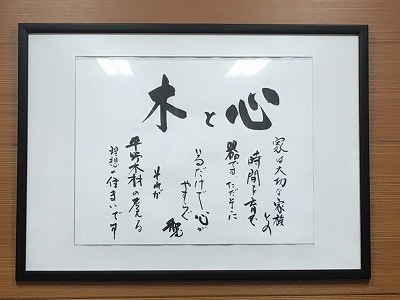 木と心
家は大切な家族との
時間を育む
器です ただそこに
いるだけで心が
やすらぐ
それが
平野木材の考える
理想の住まいです